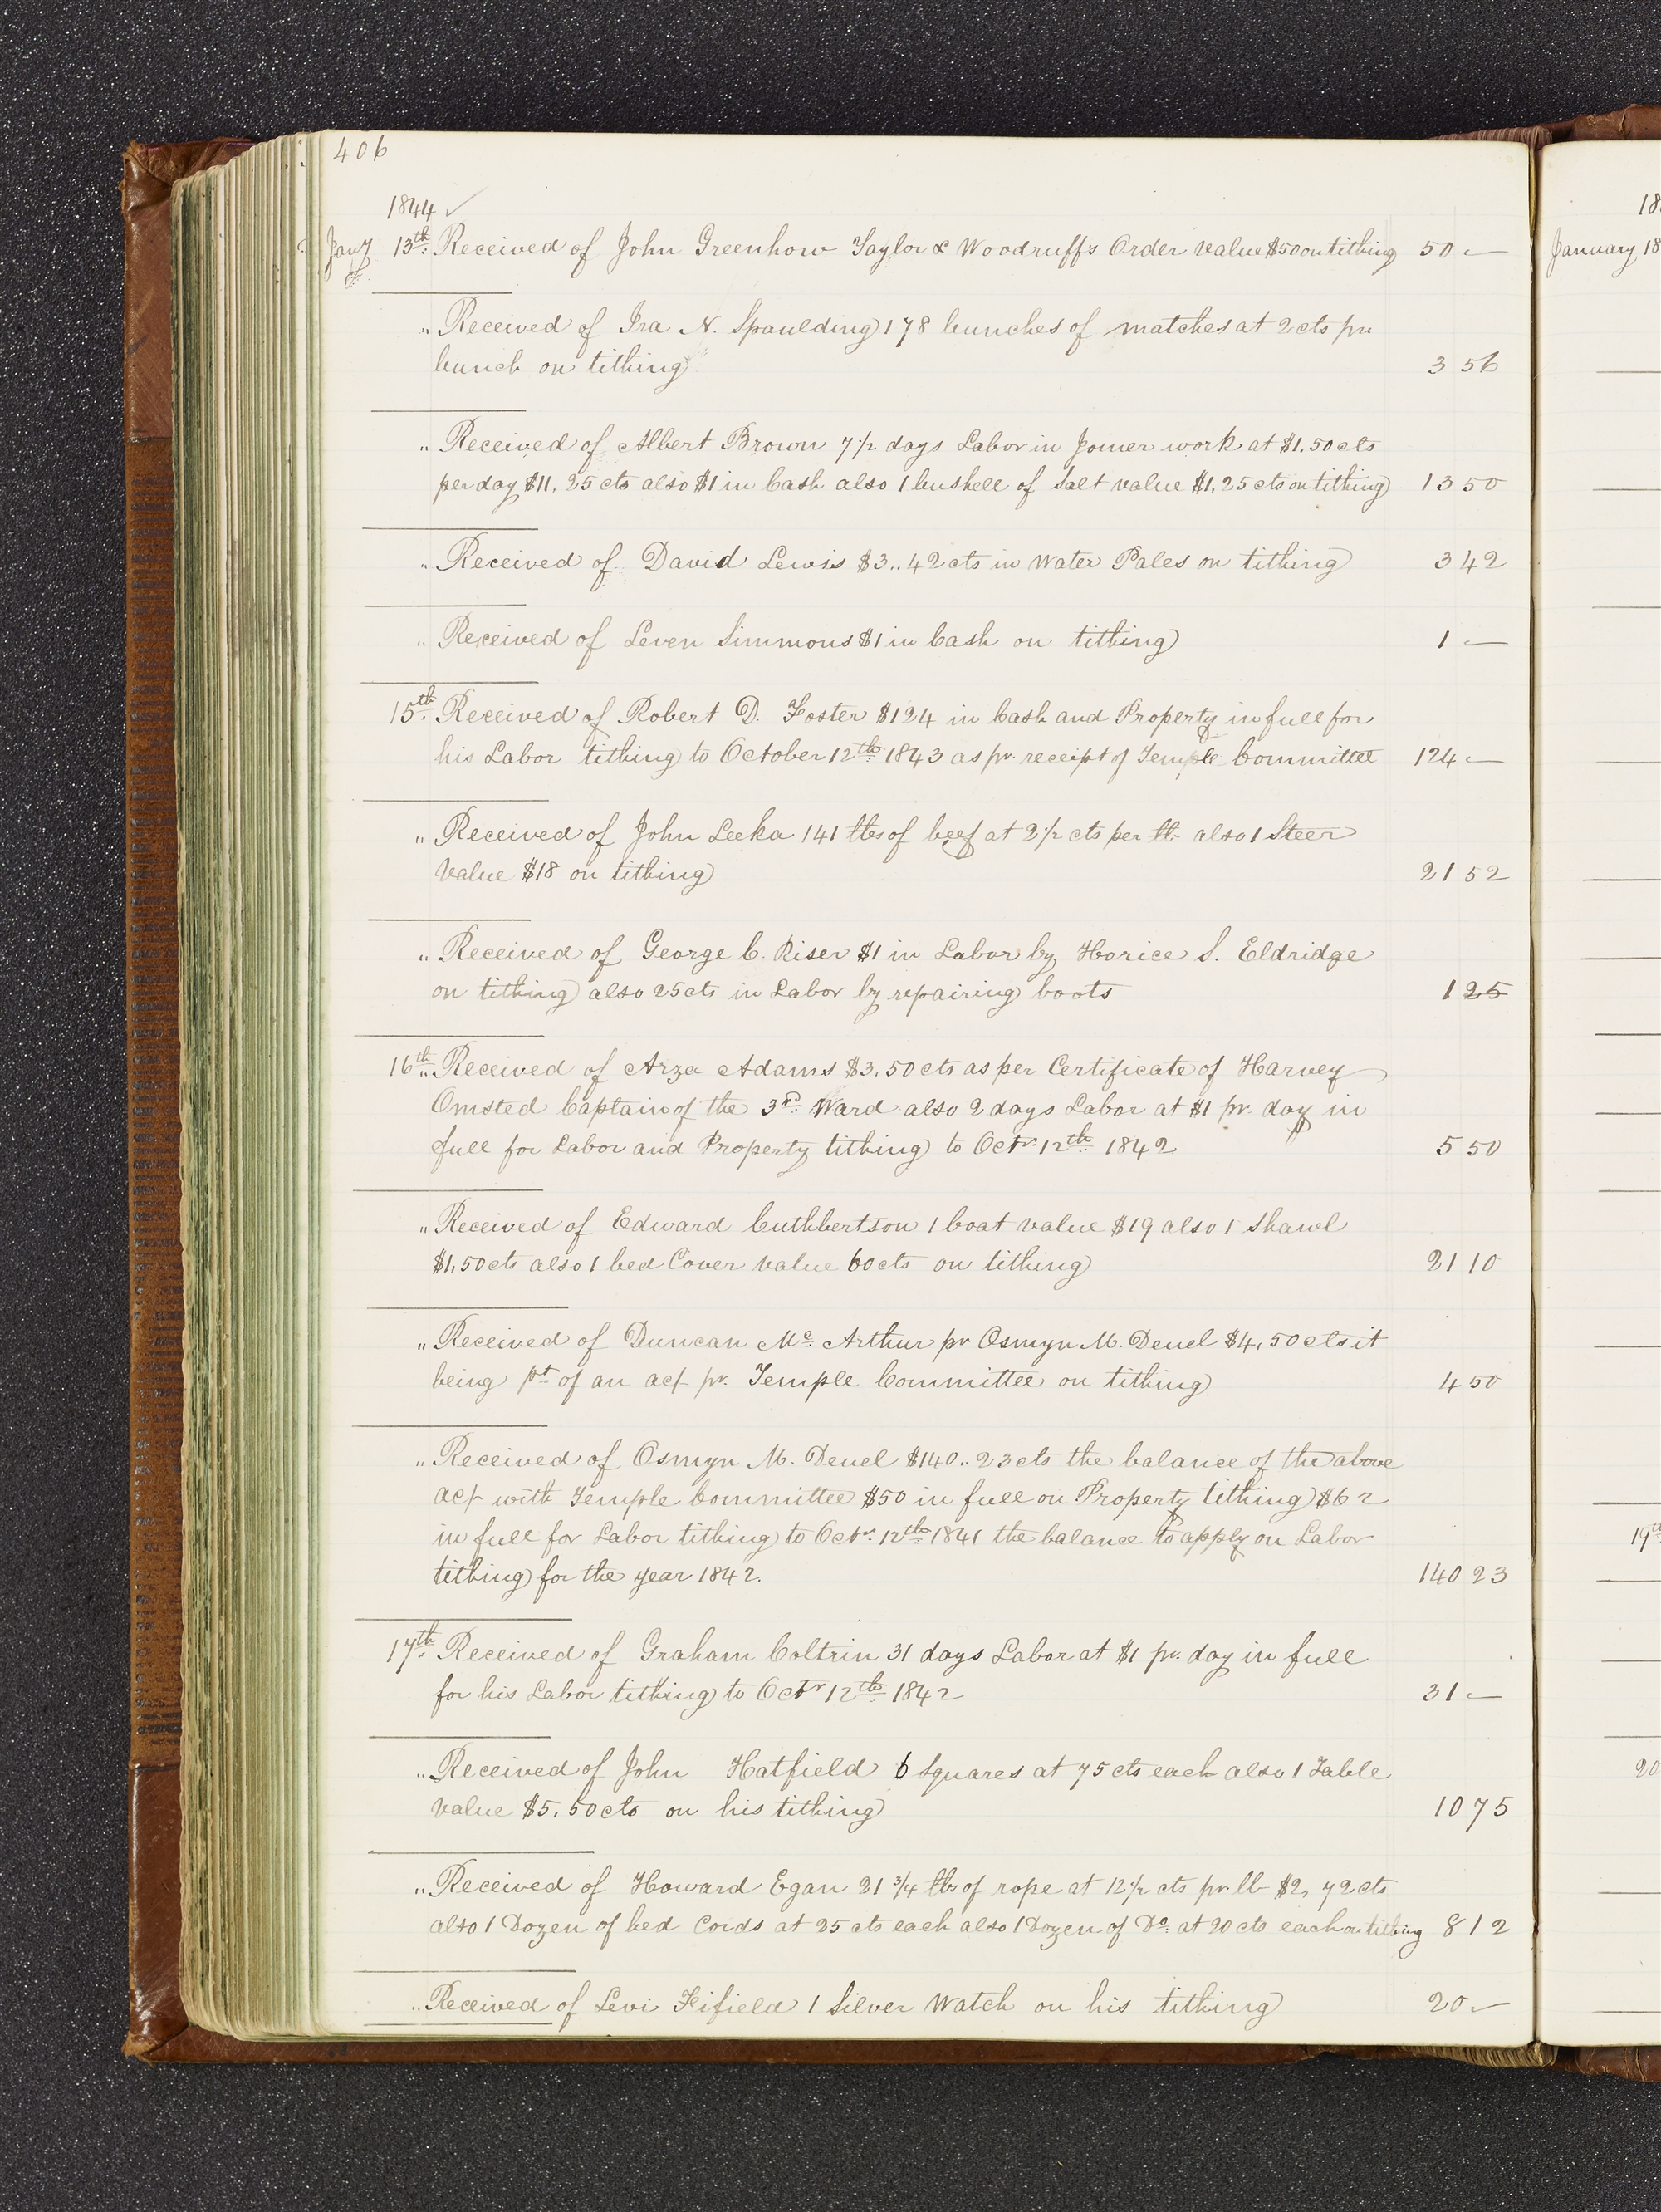 406
1844 ✓
Jany 13th Received of John Greenhow Taylor & Woodruff's Order value $50 on tithing 50 —
" Received of Ira N. Spaulding 178 bunches of matches at 2 cts pr
bunch on tithing 3 56
" Received of Albert Brown 7 1/2 days Labor in Joiner work at $1.50 cts
per day $11.25 cts also $1 in Cash also 1 bushell of Salt value $1.25 cts on tithing 13 50
" Received of David Lewis $3..42 cts in Water Pales on tithing 3 42
" Received of Leven Simmons $1 in Cash on tithing 1 —
15th Received of Robert D. Foster $124 in Cash and Property in full for
his Labor tithing to October 12th 1843 as pr. receipt of Temple Committee 124 —
" Received of John Leeka 141 lbs of beef at 2 1/2 cts per lb also 1 Steer
value $18 on tithing 21 52
" Received of George C. Riser $1 in Labor by Horice S. Eldridge
on tithing also 25 cts in Labor by repairing boots 1 25
16th " Received of Arza Adams $3.50 cts as per Certificate of Harvey
Omsted Captain of the 3rd Ward also 2 days Labor at $1 pr. day in
full for Labor and Property tithing to Octr. 12th 1842 5 50
" Received of Edward Cuthbertson 1 boat value $19 also 1 Shawl
$1.50 cts also 1 bed Cover value 60 cts on tithing 21 10
" Received of Duncan Mc Arthur pr Osmyn M. Deuel $4.50 cts it
being pt of an act pr. Temple Committee on tithing 4 50
" Received of Osmyn M. Deuel $140..23 cts the balance of the above
act with Temple Committee $50 in full on Property tithing $62
in full for Labor tithing to Octr. 12th 1841 the balance to apply on Labor
tithing for the year 1842. 140 23
17th Received of Graham Coltrin 31 days Labor at $1 pr. day in full
for his Labor tithing to Octr 12th 1842 31 —
" Received of John Hatfield 6 Squares at 75 cts each also 1 Table
value $5.50 cts on his tithing 10 75
" Received of Howard Egan 21 3/4 lbs of rope at 12 1/2 cts pr lb $2,72 cts
also 1 Dozen of bed Cords at 25 cts each also 1 Dozen of Do. at 20 cts each on tithing 8 12
" Received of Levi Fifield 1 Silver Watch on his tithing 20 —
18
January 18
19th
20